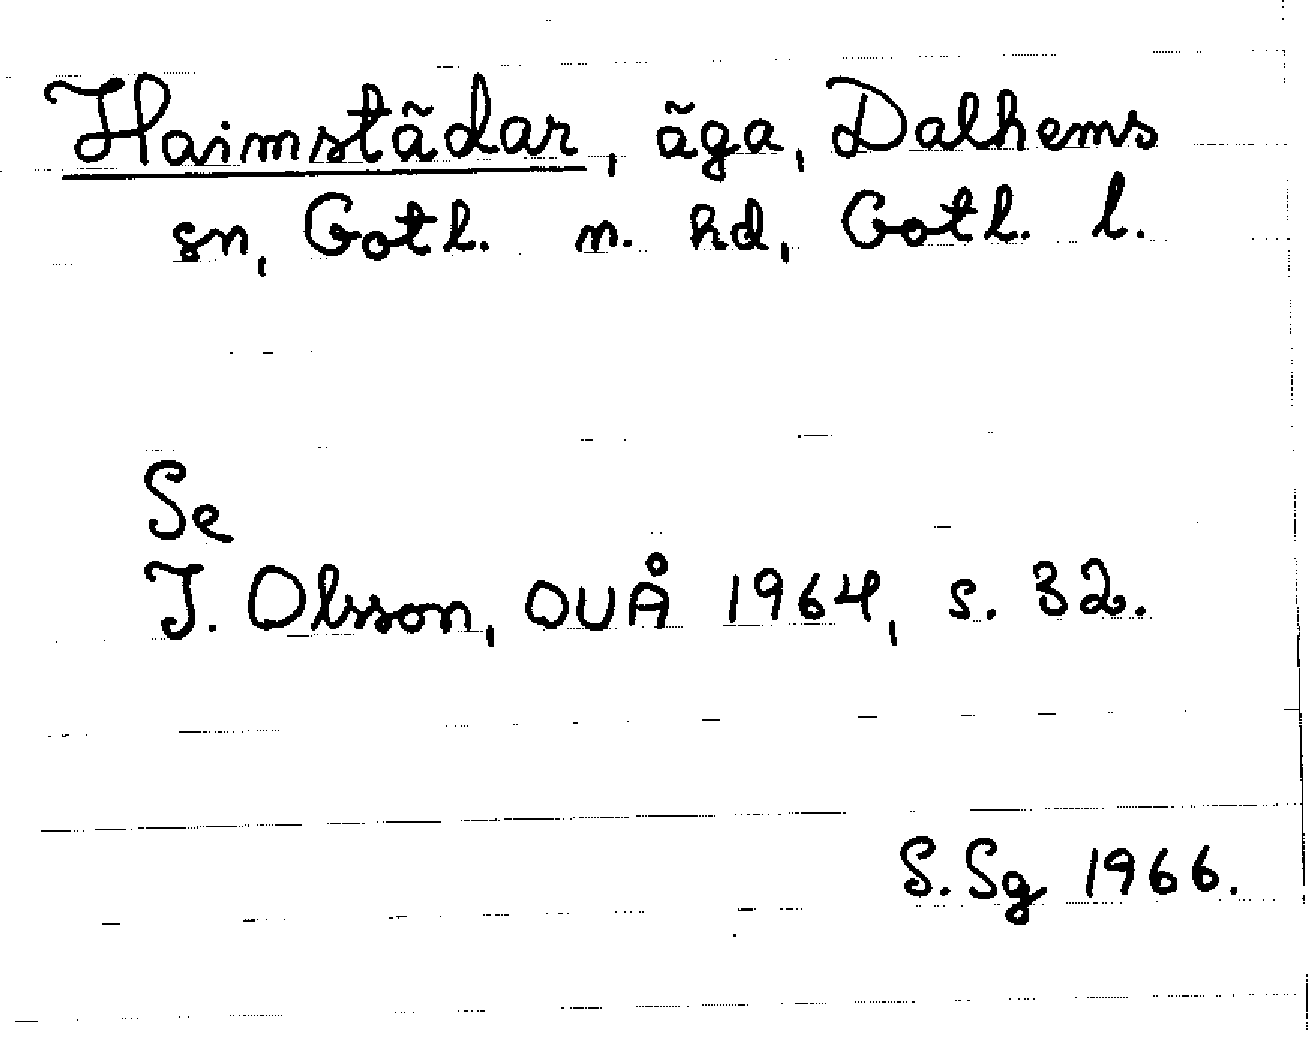 Haimstädar, äga, Dalhems
sn, Gotl. n. hd, Gotl. l.
Se
I. Olsson, OUÅ 1964, s. 32.
S. Sg 1966.